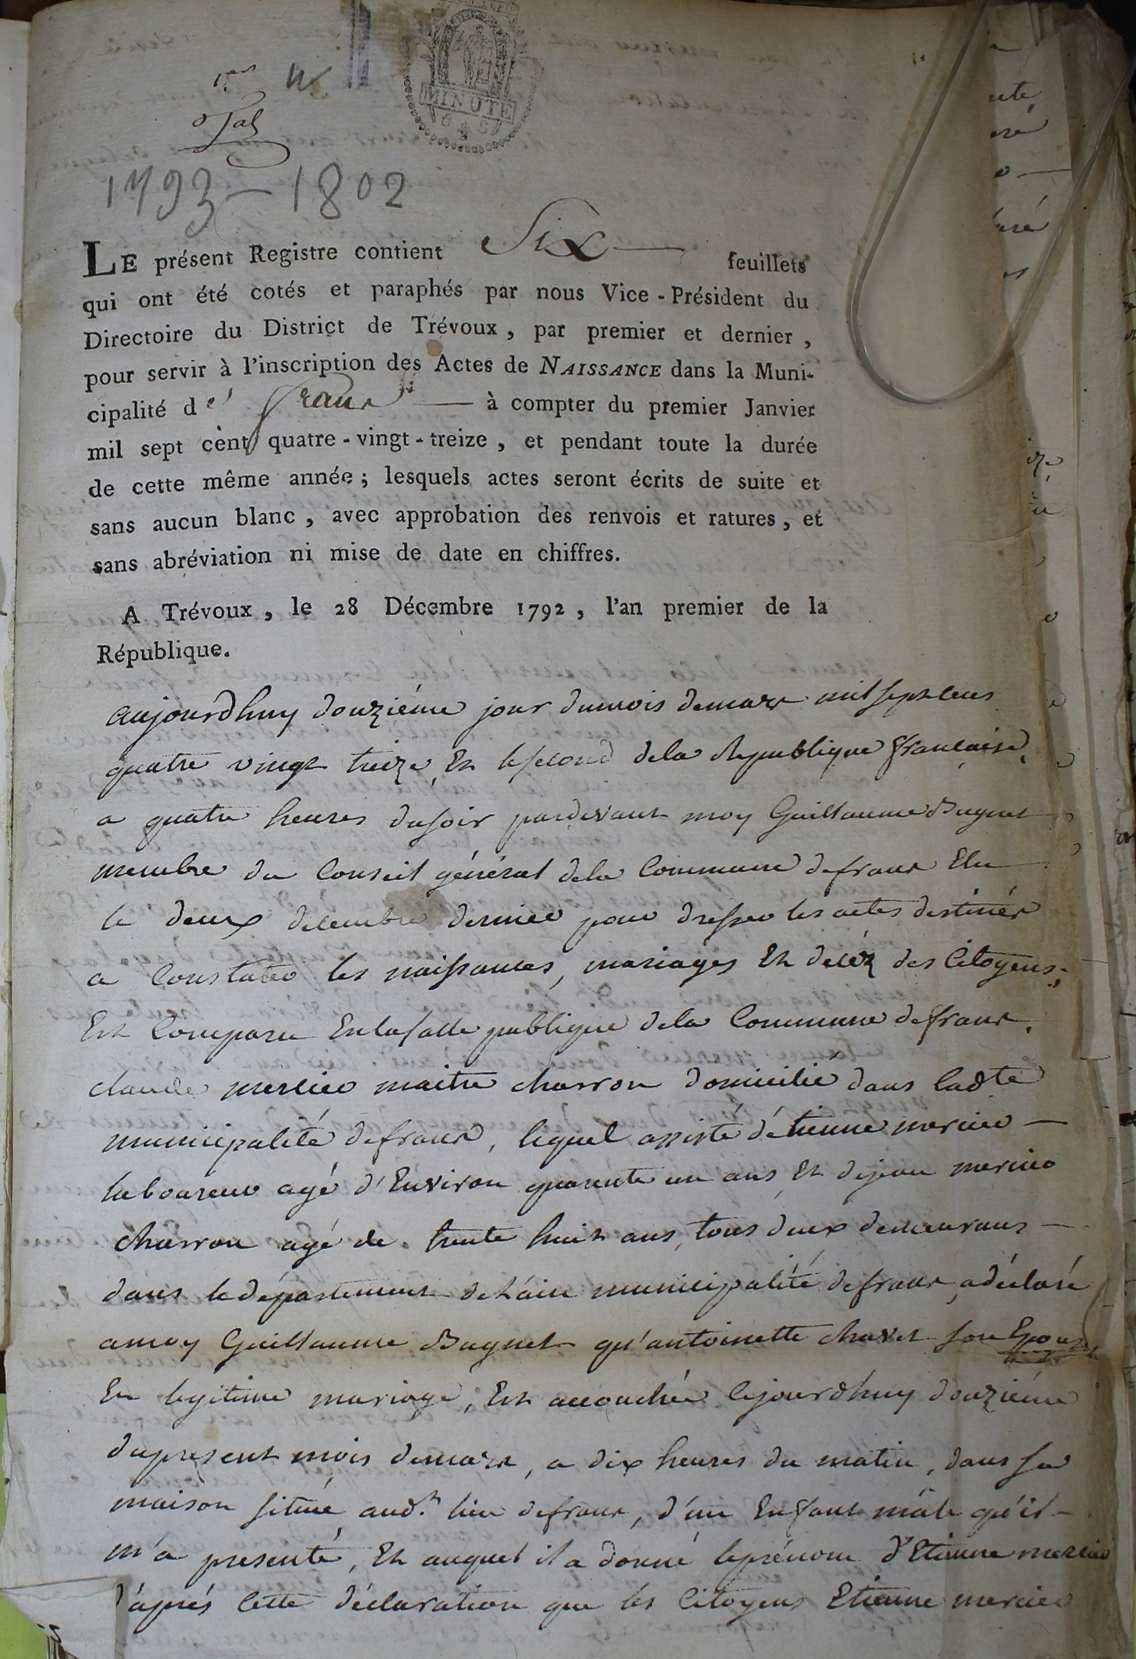 MINUTE
1793 - 1802
LE présent Registre contient Six feuillets
qui ont été cotés et paraphés par nous Vice-Président du
Directoire du District de Trévoux, par premier et dernier,
pour servir à l'inscription des Actes de NAISSANCE dans la Muni-
cipalité de frans à compter du premier Janvier
mil sept cent quatre-vingt-treize, et pendant toute la durée
de cette même année; lesquels actes seront écrits de suite et
sans aucun blanc, avec approbation des renvois et ratures, et
sans abréviation ni mise de date en chiffres.
A Trévoux, le 28 Décembre 1792, l'an premier de la
République.
aujourdhuy douziéme jour du mois de mars mil sept cens
quatre vingt treize Et le second de la Republique française,
a quatre heures du soir pardevant moy Guillaume Buynet
membre du Conseil général de la Commune de frans Elu
le deux décembre dernier pour dresser les actes destinés
a Constater les naissances, mariages Et décéz des Citoyens;
Est Comparu En la salle publique de la Commune de frans,
claude mercier maitre charron domicilié dans ladte
municipalité de frans, lequel assisté d'étienne mercier —
laboureur agé d'Environ quarente un ans Et de jean mercier
charron agé de trente huit ans, tous deux demeurans —
dans le département de L'ain municipalité de frans, a déclaré
a moy Guillaume Buynet qu'antoinette chavet son Epouse
En legitime mariage, Est accouchée cejourdhuy douziéme
du present mois de mars, a dix heures du matin, dans sa
maison située aud.t lieu de frans, d'un Enfant mâle qu'il —
m'a presenté, Et auquel il a donné le prénom d'Etienne mercier
d'aprés cette déclaration que les Citoyens Etienne mercier